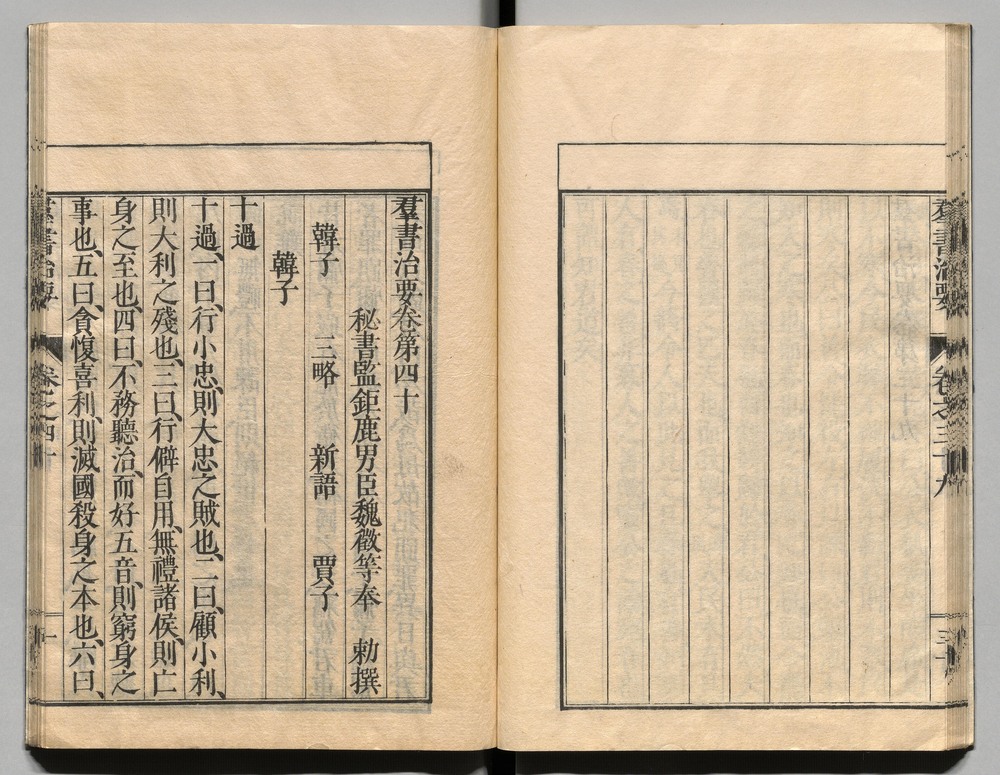 羣書治要 卷之三十九
三十
羣書治要卷第四十
秘書監鉅鹿男臣魏徵等奉 勅撰
韓子 三略 新語 賈子
韓子
十過
十過、一曰、行小忠、則大忠之賊也、二曰、顧小利、
則大利之殘也、三曰、行僻自用、無禮諸侯、則亡
身之至也、四曰、不務聽治、而好五音、則窮身之
事也、五曰、貪愎喜利、則滅國殺身之本也、六曰、
羣書治要 卷之四十
一